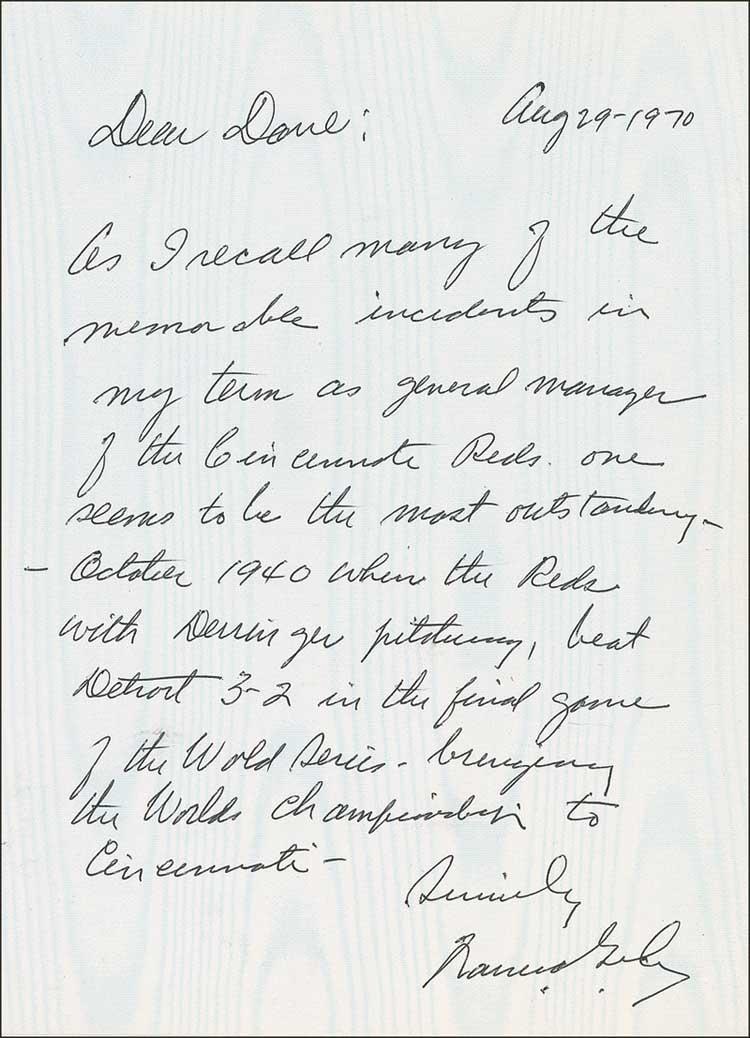 Dear Dave:
Aug 29-1970
As I recall many of the
memorable incidents in
my term as general manager
of the Cincinnati Reds. one
seems to be the most outstanding -
- October 1940 when the Reds
with Derringer pitching, beat
Detroit 3-2 in the final game
of the Wold Series - bringing
the Worlds Championship to
Cincinnati -
Sincerely
Warren Giles